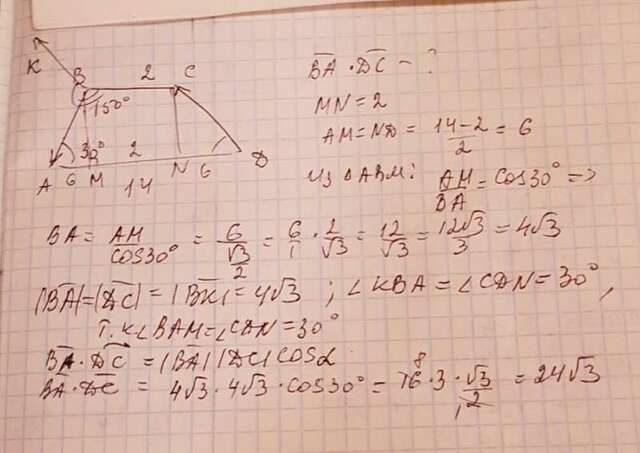 K
B 2 C
150°
30°
2
A 6 M N 6 D
14
B̅A̅ · D̅C̅ - ?
MN = 2
AM = ND = (14-2)/2 = 6
Из ΔABM: AM/BA = cos30° =>
BA = AM/cos30° = 6/(√3/2) = 6/1 · 2/√3 = 12/√3 = 12√3/3 = 4√3
|B̅A̅| = |D̅C̅| = |B̅K̅| = 4√3 ; ∠KBA = ∠CDN = 30°,
т.к ∠BAM = ∠CDN = 30°
B̅A̅ · D̅C̅ = |B̅A̅| |DC| cosα
BA · DC = 4√3 · 4√3 · cos30° = 16 8 · 3 · √3/2 1 = 24√3